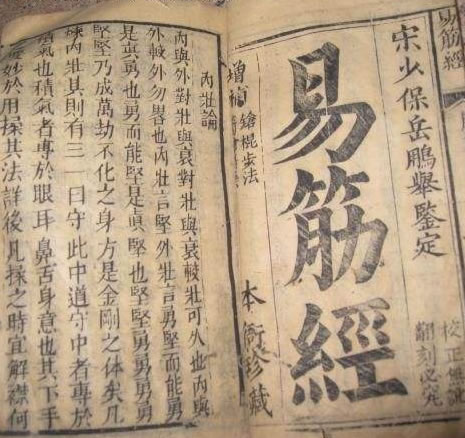 易筋經
宋少保岳鵬舉鑒定
校正無訛
翻刻必究
易筋經
增補
鎗棍步法
本衙珍藏
內壯論
內與外對壯與衰對壯與衰較壯可久也內與
外較外勿畧也內壯言堅外壯言勇堅而能勇
是真勇也勇而能堅是真堅也堅堅勇勇勇勇
堅堅乃成萬劫不化之身方是金剛之体矣凡
練內壯其則有三 曰守此中道守中者專於
積氣也積氣者專於眼耳鼻舌身意也其下手
妙於用揉其法詳後凡揉之時宜解襟仰